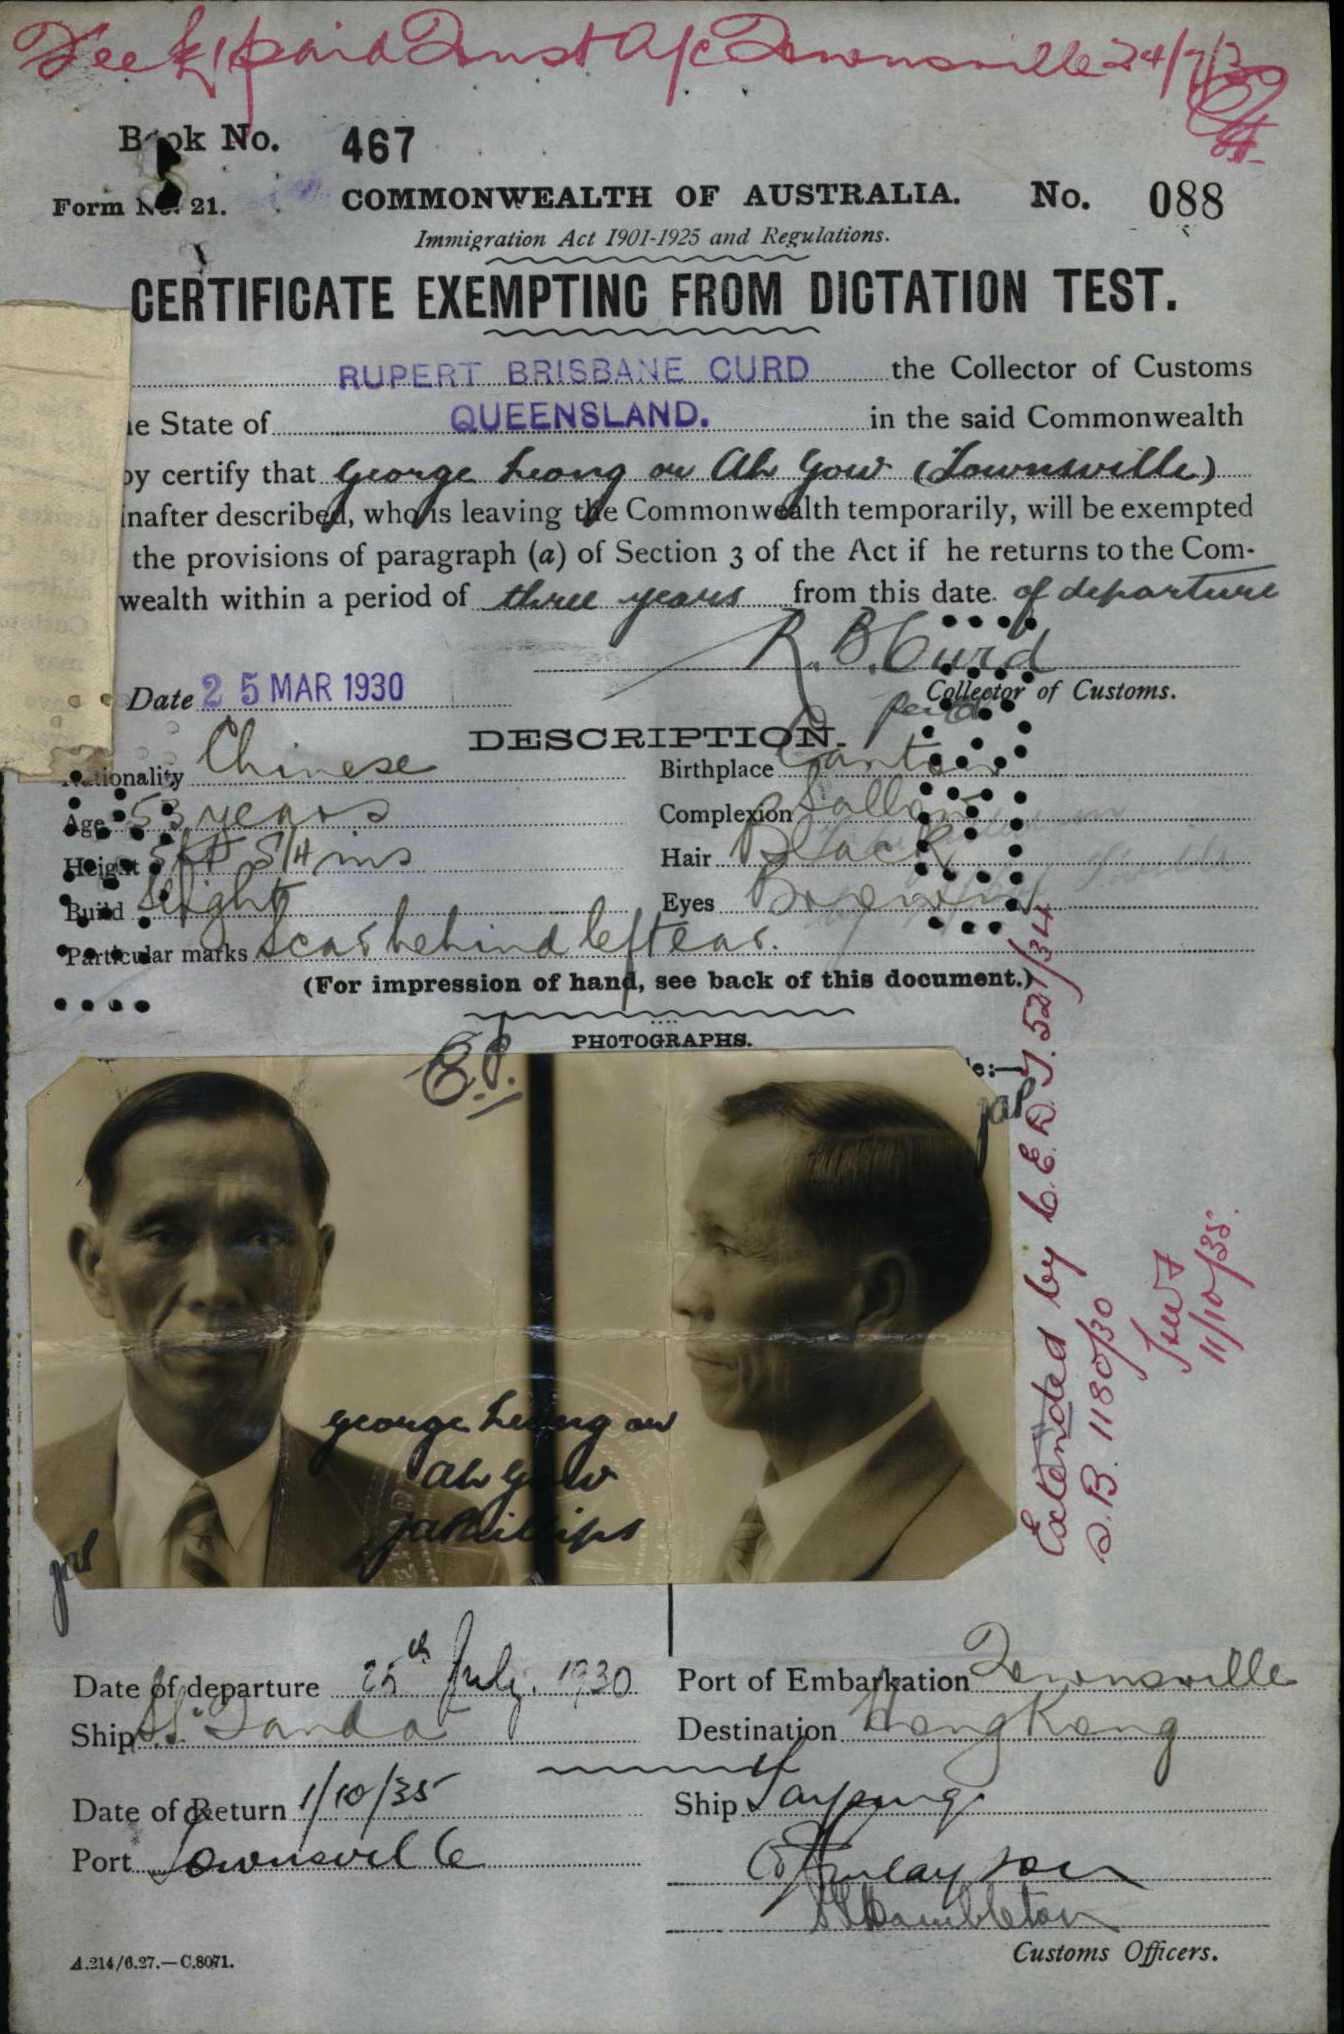 Fee £1 paid Trust A/c Townsville 24/7/30
Book No. 467
Form No. 21.
COMMONWEALTH OF AUSTRALIA.
No. 088
Immigration Act 1901-1925 and Regulations.
CERTIFICATE EXEMPTING FROM DICTATION TEST.
RUPERT BRISBANE CURD the Collector of Customs
e State of QUEENSLAND. in the said Commonwealth
by certify that George Leong or Ah Gow (Townsville)
inafter described, who is leaving the Commonwealth temporarily, will be exempted
the provisions of paragraph (a) of Section 3 of the Act if he returns to the Com-
wealth within a period of three years from this date of departure
R. B. Curd
Date 25 MAR 1930
Collector of Customs.
DESCRIPTION.
Nationality Chinese
Birthplace Canton
Age 53 years
Complexion Sallow
Height 5 ft 5 1/4 ins
Hair Black
Build Slight
Eyes Brown
Particular marks Scar behind left ear.
(For impression of hand, see back of this document.)
PHOTOGRAPHS.
e:—
George Leong or
Ah Gow
JaPhillips
Extended by C. & E. D. T. 521/34
S.B. 1180/30
11/10/35.
Date of departure 25th July. 1930
Port of Embarkation Townsville
Ship S.S. Tanda
Destination Hong Kong
Date of Return 1/10/35
Ship Taiping
Port Townsville
Finlayson
Hambleton
Customs Officers.
A.214/6.27.—C.8071.